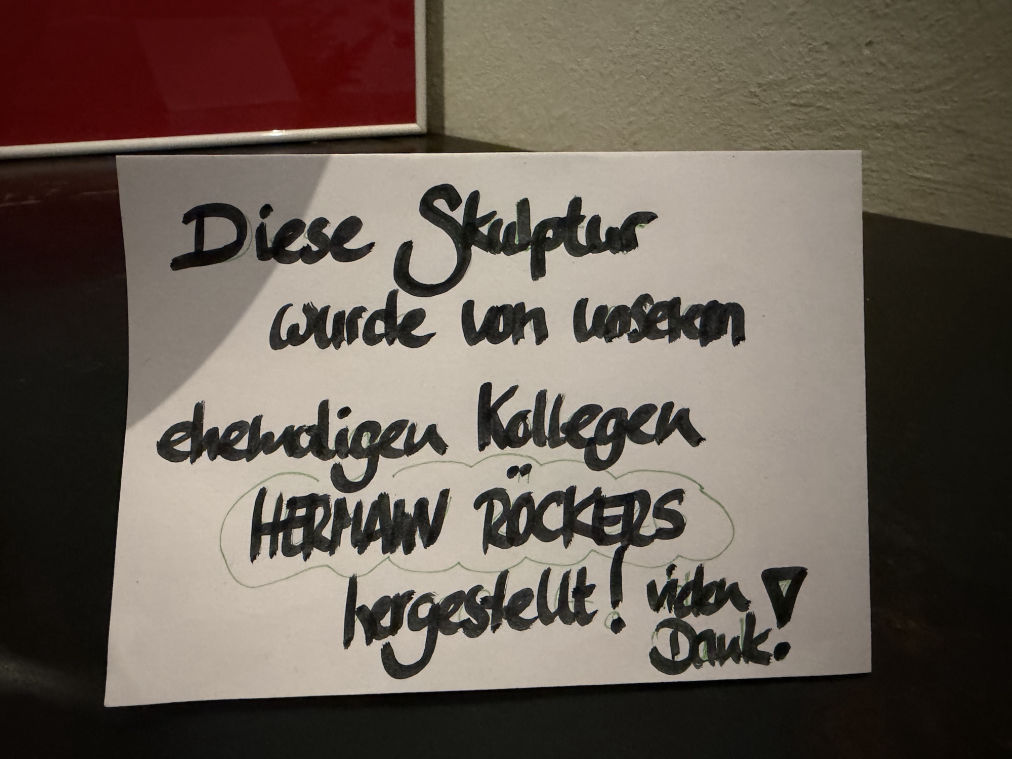 Diese Skulptur
wurde von unserem
ehemaligen Kollegen
HERMANN RÖCKERS
hergestellt! vielen
Dank!